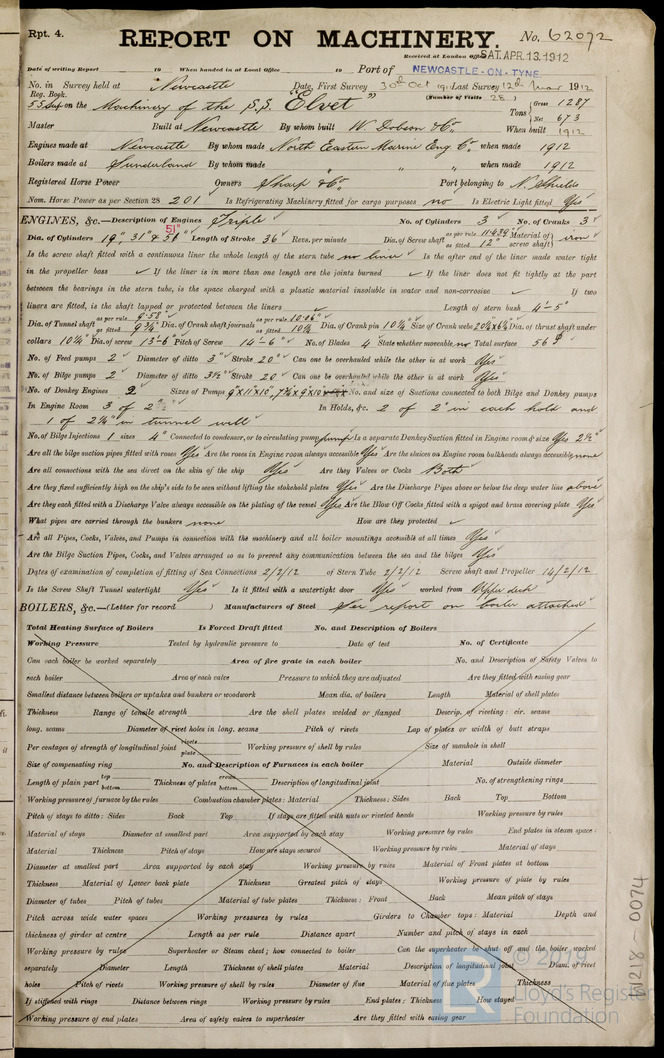 Rpt. 4.
REPORT ON MACHINERY.
No. 62072
Received at London Office SAT. APR. 13. 1912
Date of writing Report 19 When handed in at Local Office 19 Port of NEWCASTLE-ON-TYNE
No. in Survey held at Newcastle Date, First Survey 30th Oct 1911 Last Survey 12th Mar 1912
Reg. Book. (Number of Visits 28)
55 Sup on the Machinery of the S.S. "Elvet" Tons { Gross 1287 Net 673
Master Built at Newcastle By whom built W. Dobson & Co. When built 1912
Engines made at Newcastle By whom made North Eastern Marine Eng. Co. when made 1912
Boilers made at Sunderland By whom made " " when made 1912
Registered Horse Power Owners Sharp & Co. Port belonging to N. Shields
Nom. Horse Power as per Section 28 201 Is Refrigerating Machinery fitted for cargo purposes no Is Electric Light fitted Yes
ENGINES, &c.—Description of Engines Triple No. of Cylinders 3 No. of Cranks 3
51"
Dia. of Cylinders 19", 31" & 51" Length of Stroke 36" Revs. per minute Dia. of Screw shaft as per rule 11.439" as fitted 12" Material of screw shaft iron
Is the screw shaft fitted with a continuous liner the whole length of the stern tube no liner Is the after end of the liner made water tight
in the propeller boss ✓ If the liner is in more than one length are the joints burned ✓ If the liner does not fit tightly at the part
between the bearings in the stern tube, is the space charged with a plastic material insoluble in water and non-corrosive ✓ If two
liners are fitted, is the shaft lapped or protected between the liners Length of stern bush 4'-5"
Dia. of Tunnel shaft as per rule 9.58" as fitted 9¾" Dia. of Crank shaft journals as per rule 10.06" as fitted 10¼" Dia. of Crank pin 10¼" Size of Crank webs 20¼x6¾ Dia. of thrust shaft under
collars 10¼" Dia. of screw 13'-6" Pitch of Screw 14'-6" No. of Blades 4 State whether moveable no Total surface 56
No. of Feed pumps 2 Diameter of ditto 3" Stroke 20" Can one be overhauled while the other is at work Yes
No. of Bilge pumps 2 Diameter of ditto 3½" Stroke 20" Can one be overhauled while the other is at work Yes
No. of Donkey Engines 2 Sizes of Pumps 9"x11"x10", 7½"x9"x10" No. and size of Suctions connected to both Bilge and Donkey pumps
In Engine Room 3 of 2½" In Holds, &c. 2 of 2" in each hold and
1 of 2½" in tunnel well
No. of Bilge Injections 1 sizes 4" Connected to condenser, or to circulating pump pump Is a separate Donkey Suction fitted in Engine room & size Yes 2½"
Are all the bilge suction pipes fitted with roses Yes Are the roses in Engine room always accessible Yes Are the sluices on Engine room bulkheads always accessible none
Are all connections with the sea direct on the skin of the ship Yes Are they Valves or Cocks Both
Are they fixed sufficiently high on the ship's side to be seen without lifting the stokehold plates Yes Are the Discharge Pipes above or below the deep water line above
Are they each fitted with a Discharge Valve always accessible on the plating of the vessel Yes Are the Blow Off Cocks fitted with a spigot and brass covering plate Yes
What pipes are carried through the bunkers none How are they protected ✓
Are all Pipes, Cocks, Valves, and Pumps in connection with the machinery and all boiler mountings accessible at all times Yes
Are the Bilge Suction Pipes, Cocks, and Valves arranged so as to prevent any communication between the sea and the bilges Yes
Dates of examination of completion of fitting of Sea Connections 2/2/12 of Stern Tube 2/2/12 Screw shaft and Propeller 14/2/12
Is the Screw Shaft Tunnel watertight Yes Is it fitted with a watertight door Yes worked from Upper deck
BOILERS, &c.—(Letter for record ) Manufacturers of Steel See report on boiler attached
Total Heating Surface of Boilers Is Forced Draft fitted No. and Description of Boilers
Working Pressure Tested by hydraulic pressure to Date of test No. of Certificate
Can each boiler be worked separately Area of fire grate in each boiler No. and Description of Safety Valves to
each boiler Area of each valve Pressure to which they are adjusted Are they fitted with easing gear
Smallest distance between boilers or uptakes and bunkers or woodwork Mean dia. of boilers Length Material of shell plates
Thickness Range of tensile strength Are the shell plates welded or flanged Descrip. of riveting: cir. seams
long. seams Diameter of rivet holes in long. seams Pitch of rivets Lap of plates or width of butt straps
Per centages of strength of longitudinal joint rivets plate Working pressure of shell by rules Size of manhole in shell
Size of compensating ring No. and Description of Furnaces in each boiler Material Outside diameter
Length of plain part top bottom Thickness of plates crown bottom Description of longitudinal joint No. of strengthening rings
Working pressure of furnace by the rules Combustion chamber plates: Material Thickness: Sides Back Top Bottom
Pitch of stays to ditto: Sides Back Top If stays are fitted with nuts or riveted heads Working pressure by rules
Material of stays Diameter at smallest part Area supported by each stay Working pressure by rules End plates in steam space:
Material Thickness Pitch of stays How are stays secured Working pressure by rules Material of stays
Diameter at smallest part Area supported by each stay Working pressure by rules Material of Front plates at bottom
Thickness Material of Lower back plate Thickness Greatest pitch of stays Working pressure of plate by rules
Diameter of tubes Pitch of tubes Material of tube plates Thickness: Front Back Mean pitch of stays
Pitch across wide water spaces Working pressures by rules Girders to Chamber tops: Material Depth and
thickness of girder at centre Length as per rule Distance apart Number and pitch of stays in each
Working pressure by rules Superheater or Steam chest; how connected to boiler Can the superheater be shut off and the boiler worked
separately Diameter Length Thickness of shell plates Material Description of longitudinal joint Diam. of rivet
holes Pitch of rivets Working pressure of shell by rules Diameter of flue Material of flue plates Thickness
If stiffened with rings Distance between rings Working pressure by rules End plates: Thickness How stayed
Working pressure of end plates Area of safety valves to superheater Are they fitted with easing gear
W1218-0074
© 2019
Lloyd's Register
Foundation